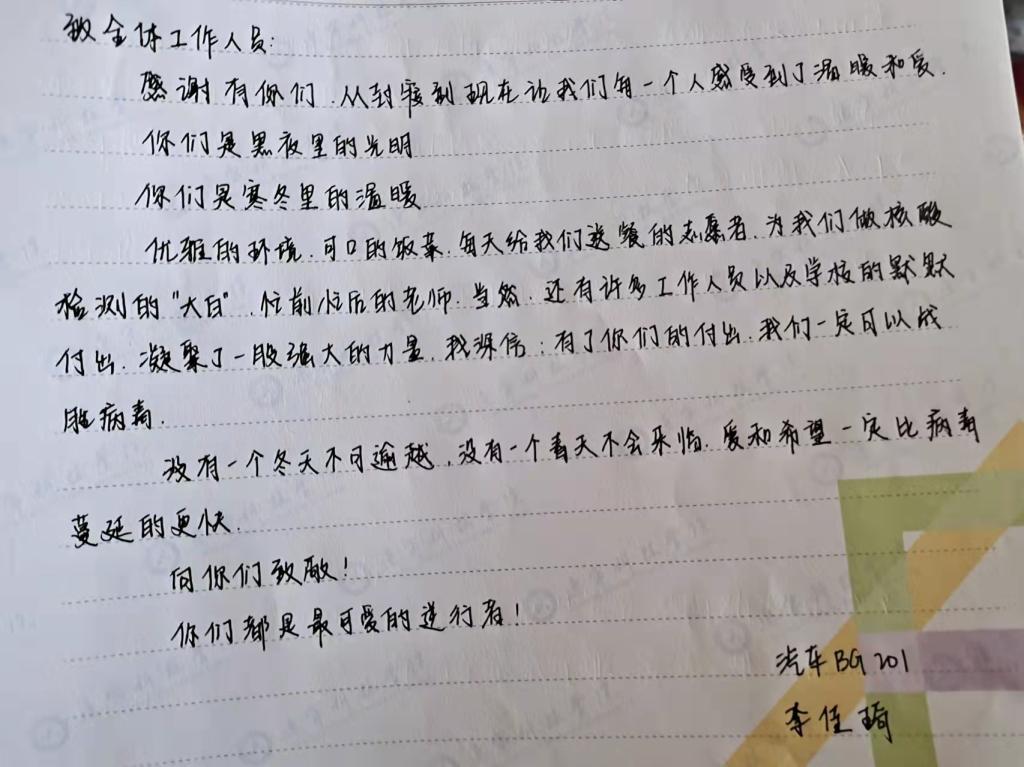 致全体工作人员:
感谢有你们.从封寝到现在让我们每一个人感受到了温暖和爱.
你们是黑夜里的光明
你们是寒冬里的温暖
优雅的环境.可口的饭菜.每天给我们送餐的志愿者.为我们做核酸
检测的"大白".忙前忙后的老师.当然.还有许多工作人员以及学校的默默
付出.凝聚了一股强大的力量.我深信:有了你们的付出.我们一定可以战
胜病毒.
没有一个冬天不可逾越.没有一个春天不会来临.爱和希望一定比病毒
蔓延的更快.
向你们致敬!
你们都是最可爱的逆行者!
汽车BG201
李佳琦